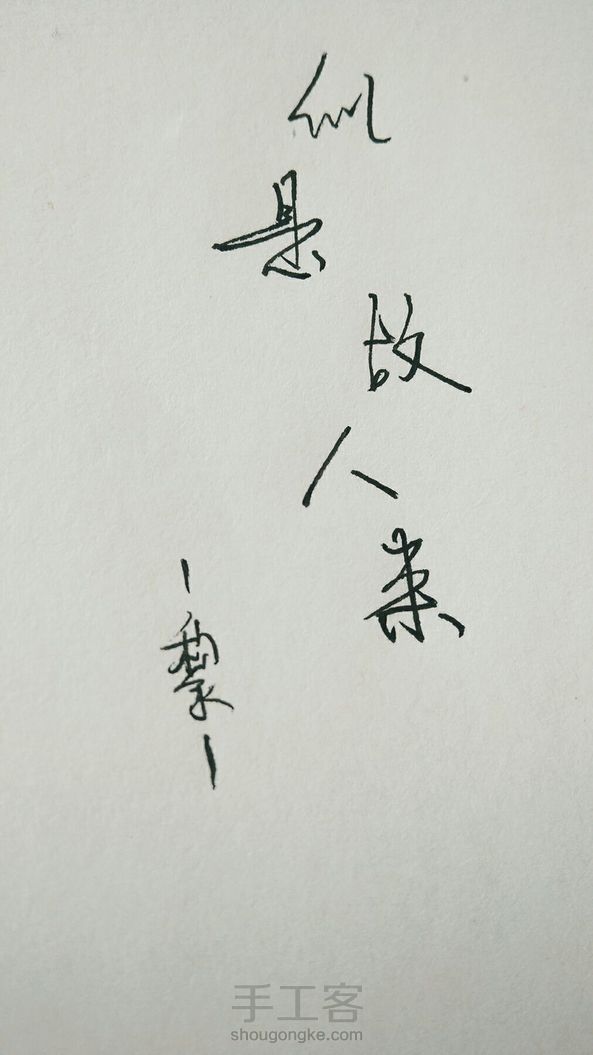 似是故人来
-黎-
手工客
shougongke.com